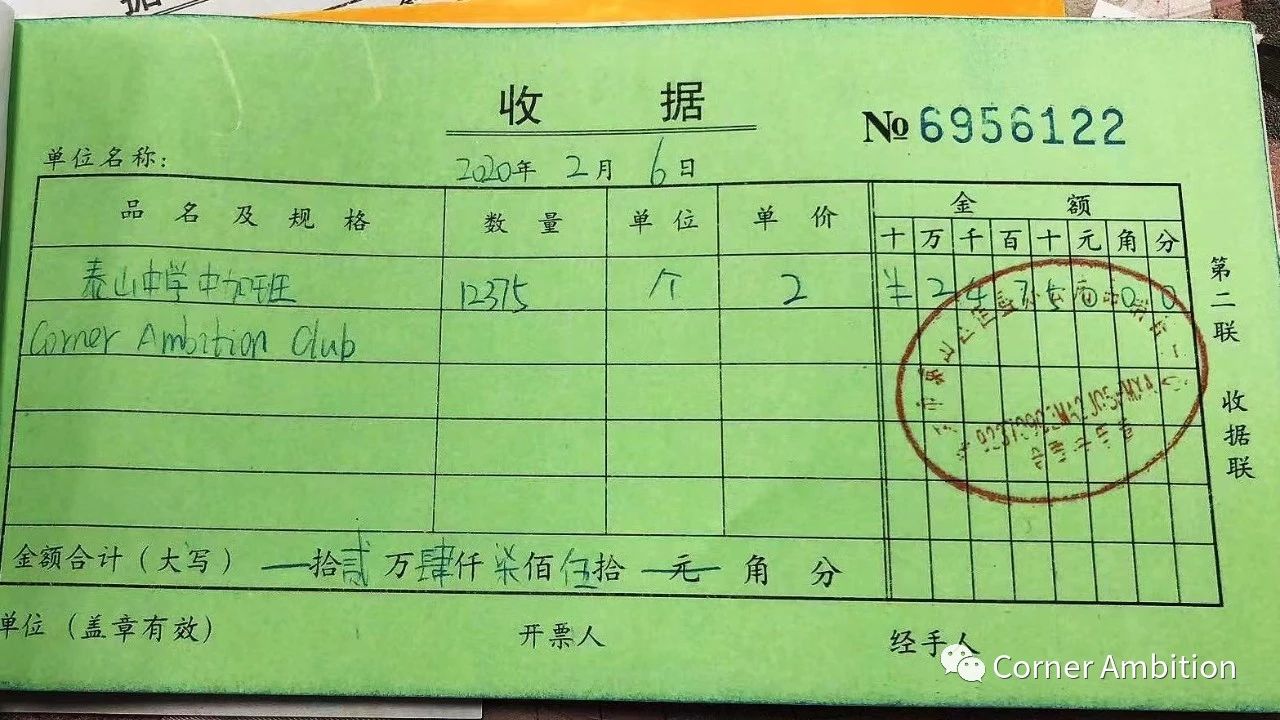 据
收 据
№ 6956122
单位名称:
2020年 2月 6日
品名及规格 数量 单位 单价 金额
十 万 千 百 十 元 角 分
泰山中学中加班 12375 个 2 ¥ 2 4 7 5 0 0 0
Corner Ambition Club
金额合计(大写) 拾贰万肆仟柒佰伍拾 元 角 分
单位(盖章有效) 开票人 经手人
第二联 收据联
Corner Ambition